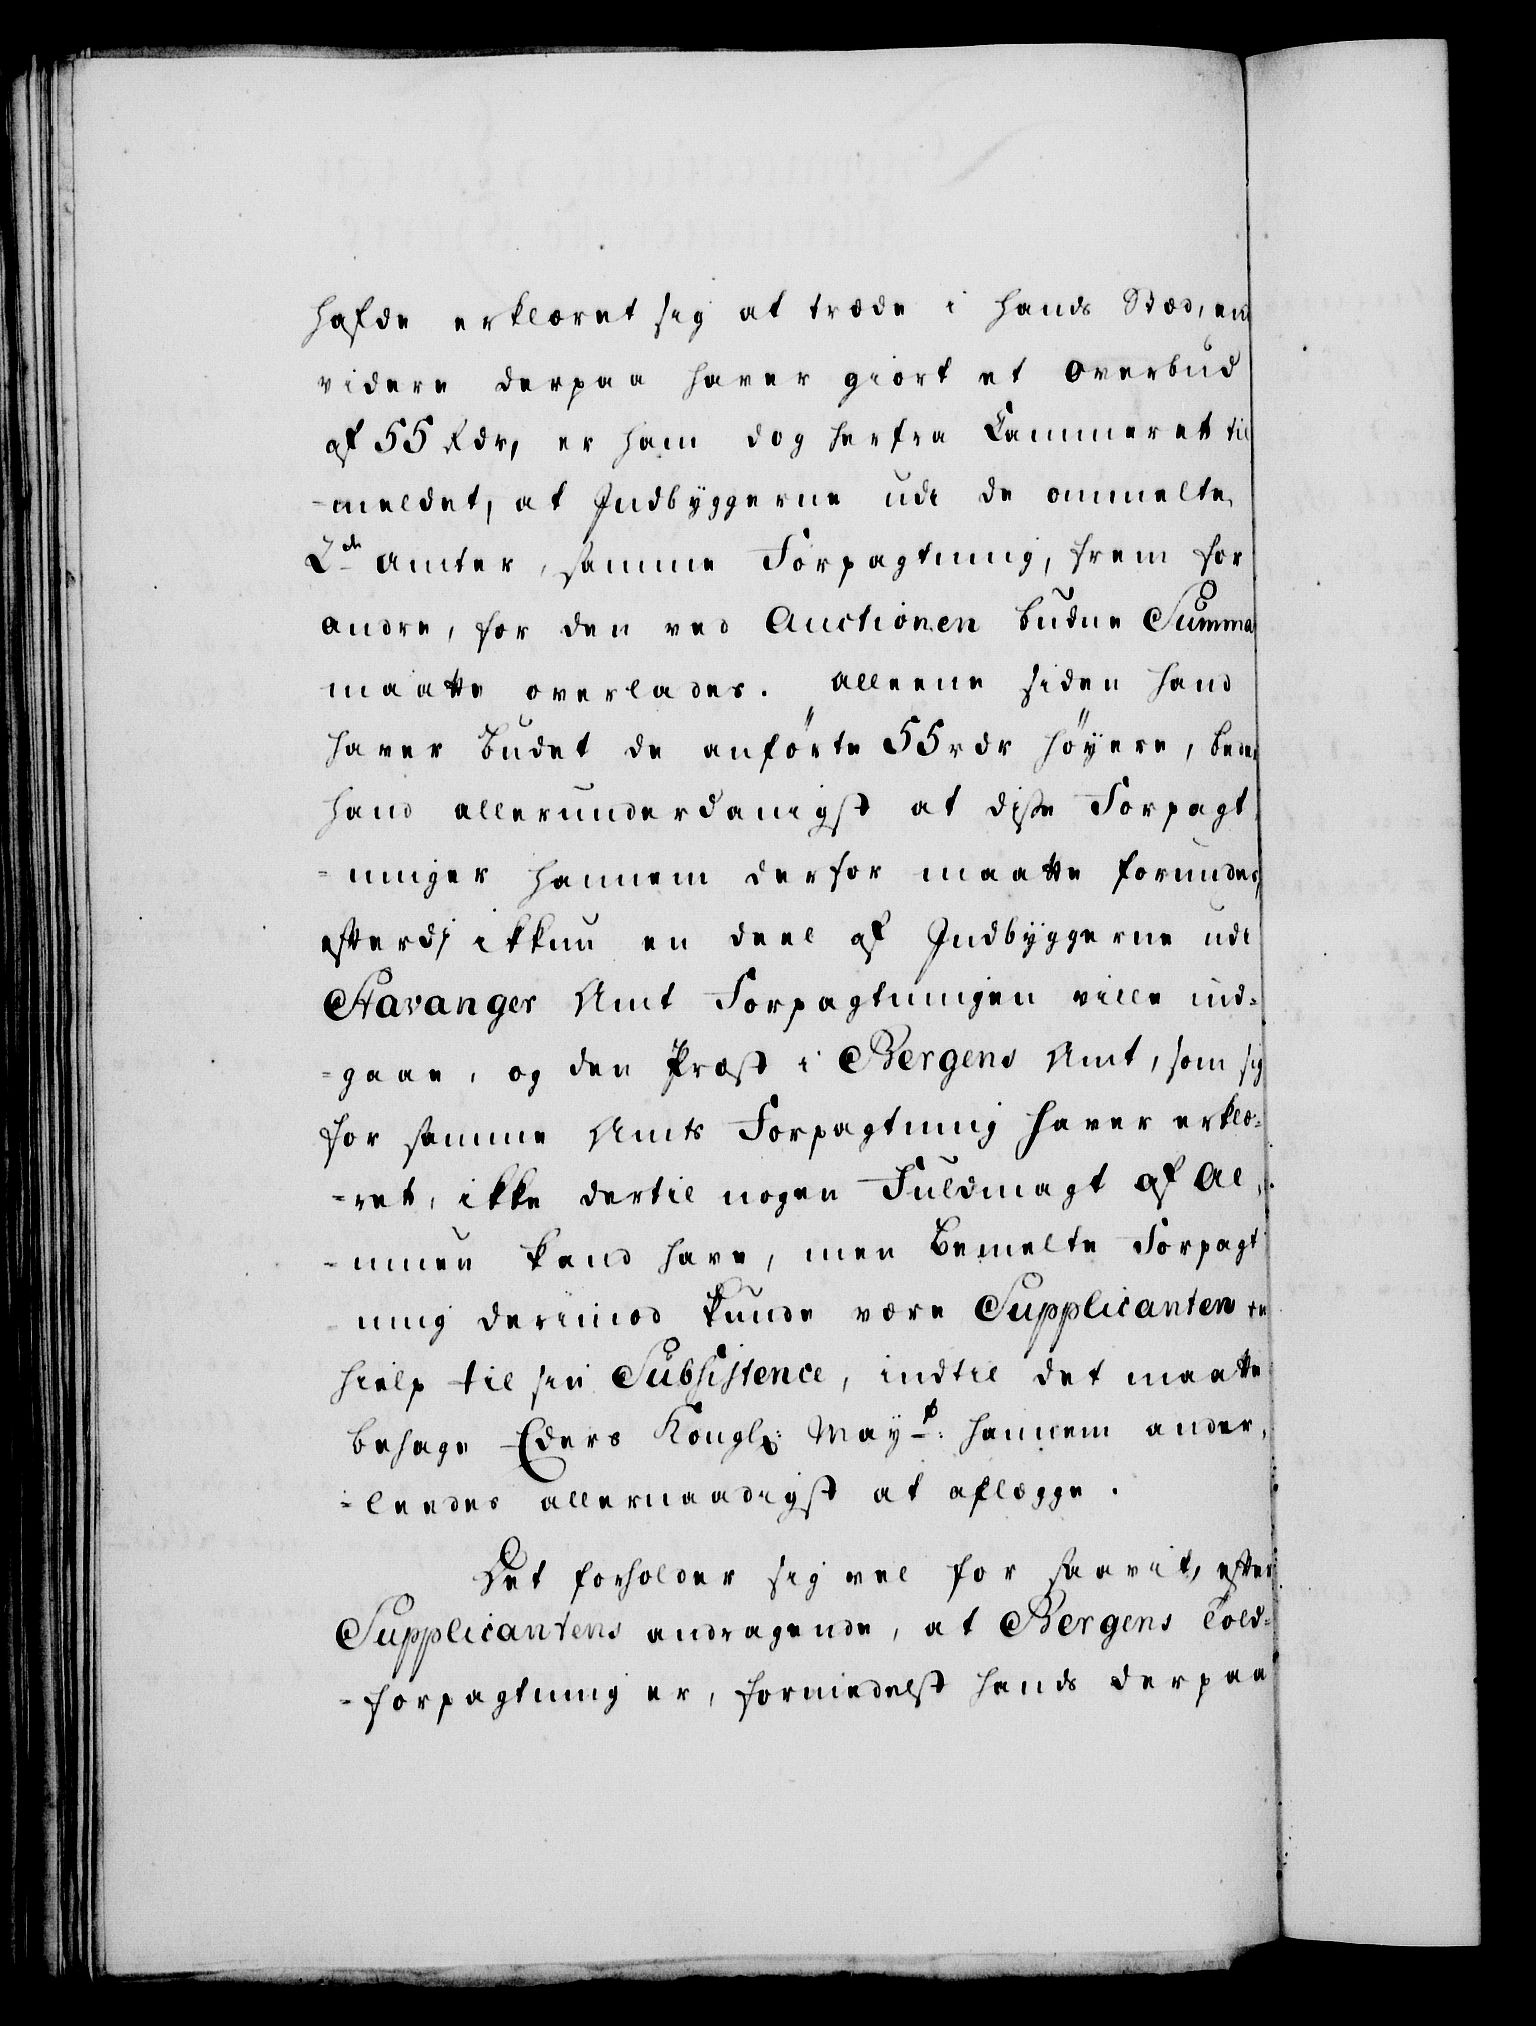 hafde erklæret sig at træde i hands Stæd, end
videre derpaa haver giort et Overbud
af 55 Rdr, er ham dog herfra Cammeret til
-meldet, at Indbyggerne udi de ommelte
2de Amter, samme Forpagtning, frem for
andre, for den ved Auctionen budne Summa
maatte overlades. Alleene siden hand
haver budet de anførte 55 rdr höyere, beder
hand allerunderdanigst at disse Forpagt
-ninger hannem derfor maatte forundes,
efterdj ikkun en deel af Indbyggerne udi
Stavanger Amt Forpagtningen ville ind-
-gaae, og den Præst i Bergens Amt, som sig
for samme Amts Forpagtning haver erklæ-
-ret, ikke dertil nogen Fuldmagt af Al,
-muen kand have, men bemelte Forpagt
-ning derimod kunde være Supplicanten en
hielp til sin Subsistence, indtil det maatte
behage Eders Kongl: May.t: hannem ander,
-leedes allernaadigst at aflægge.
Det forholder sig vel for saavit, efter
Supplicantens andragende, at Bergens Told-
-forpagtning er, formedelst hands derpaa